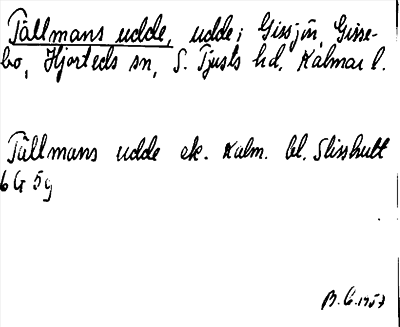 Tällmans udde, udde i Gissjön, Gisse-
bo, Hjorteds sn, S. Tjusts hd, Kalmar l.
Tällmans udde ek. Kalm. bl.
6G 5g
B. G. 1957